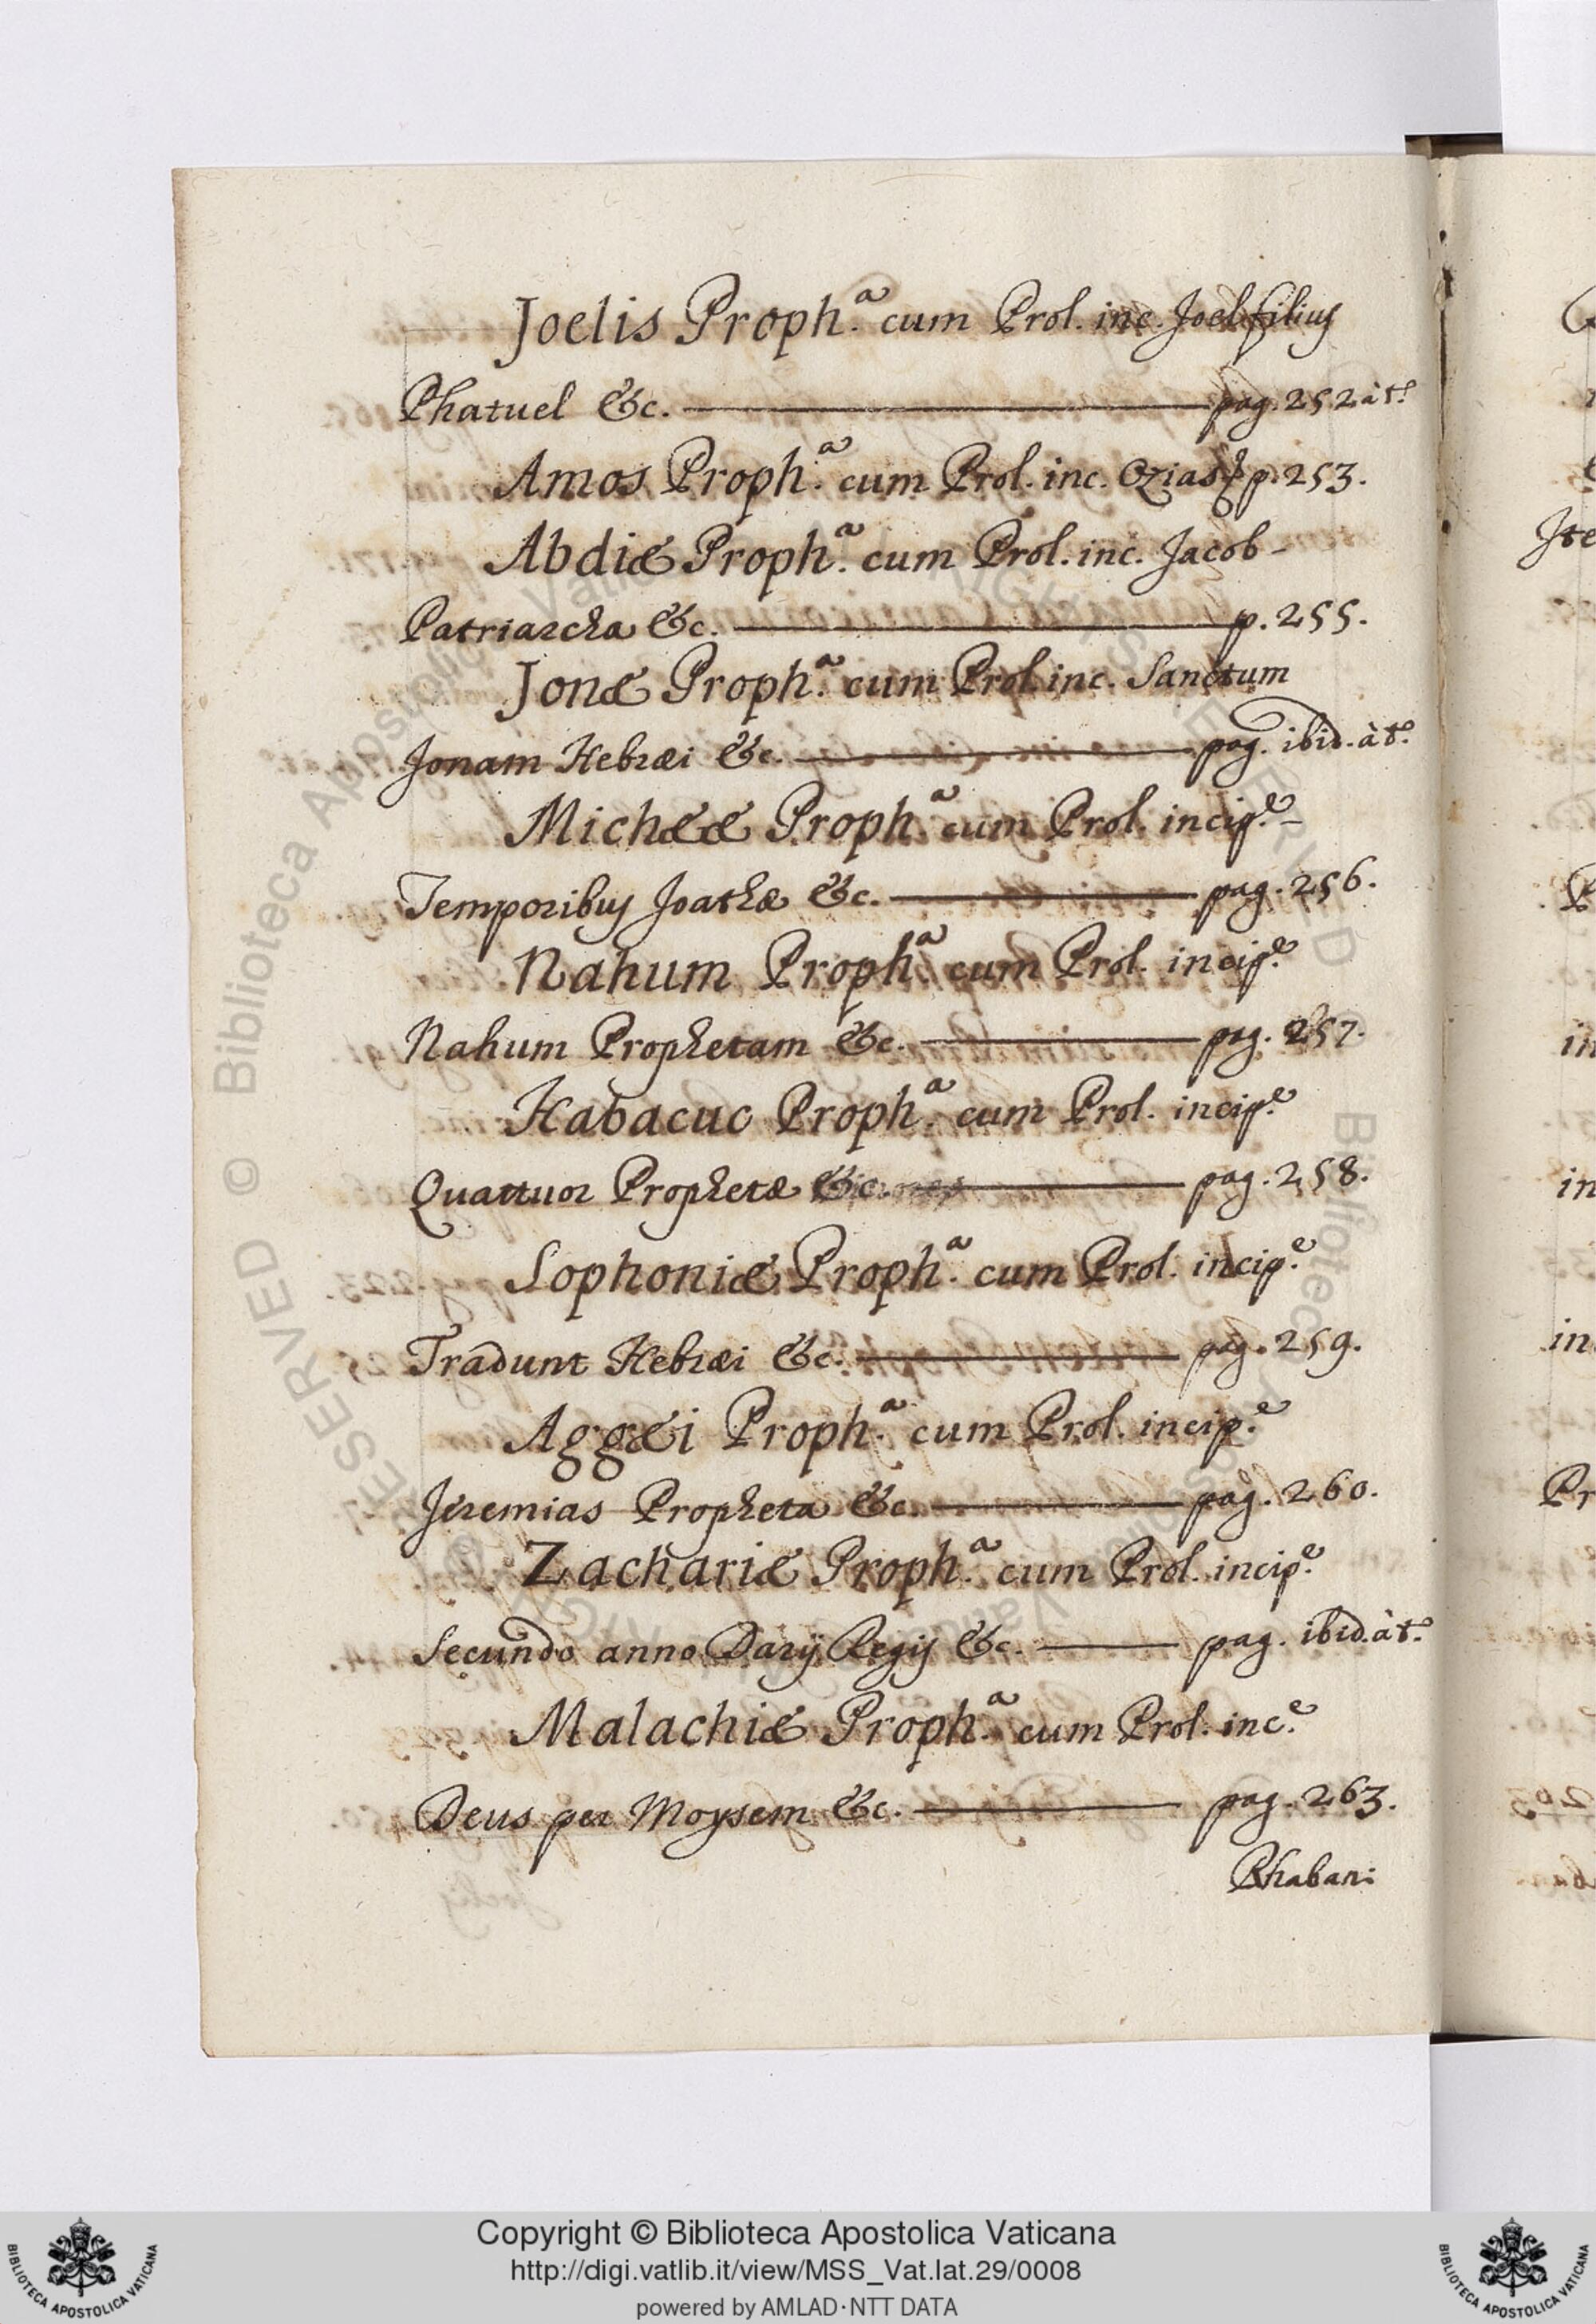 Joelis Proph.ª cum Prol. inc. Joel filius
Phatuel &c. pag. 252 àt.º
Amos Proph.ª cum Prol. inc. Ozias p. 253.
Abdiæ Proph.ª cum Prol. inc. Jacob-
Patriarcha &c. p. 255.
Jonæ Proph.ª cum Prol. inc. Sanctum
Jonam Hebræi &c. pag. ibid. àt.º
Michææ Proph.ª cum Prol. incip.e-
Temporibus Joathæ &c. pag. 256.
Nahum Proph.ª cum Prol. incip.e
Nahum Prophetam &c. pag. 257.
Habacuc Proph.ª cum Prol. incip.e
Quattuor Prophetæ &c. pag. 258.
Sophoniæ Proph.ª cum Prol. incip.e
Tradunt Hebræi &c. pag. 259.
Aggæi Proph.ª cum Prol. incip.e
Jeremias Propheta &c. pag. 260.
Zachariæ Proph.ª cum Prol. incip.e
Secundo anno Darij Regis &c. pag. ibid. àt.º
Malachiæ Proph.ª cum Prol. inc.e
Deus per Moysem &c. pag. 263.
Rhabani
Copyright © Biblioteca Apostolica Vaticana
http://digi.vatlib.it/view/MSS_Vat.lat.29/0008
powered by AMLAD·NTT DATA
BIBLIOTECA APOSTOLICA VATICANA
BIBLIOTECA APOSTOLICA VATICANA